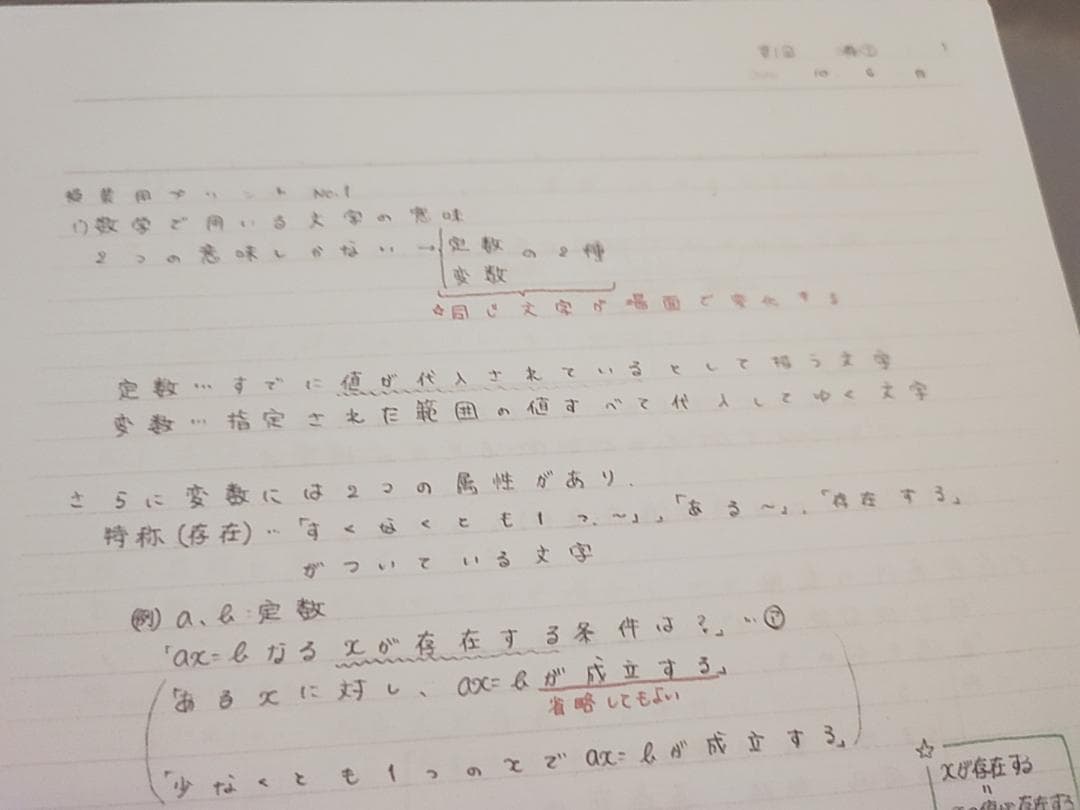 第1回
10 6
授業用プリント No.1
1)数学で用いる文字の意味
2つの意味しかない→ 定数 の2種
変数
☆同じ文字が場面で変化する
定数…すでに値が代入されているとして扱う文字
変数…指定された範囲の値すべて代入してゆく文字
さらに変数には2つの属性があり.
特称(存在)…「すくなくとも1つ、~」,「ある~」,「存在する」
がついている文字
(例) a、b:定数
「ax=bなるxが存在する条件は?」…㋐
「あるxに対し、ax=bが成立する」
省略してもよい
「少なくとも1つのxでax=bが成立する」
☆
xが存在する
=